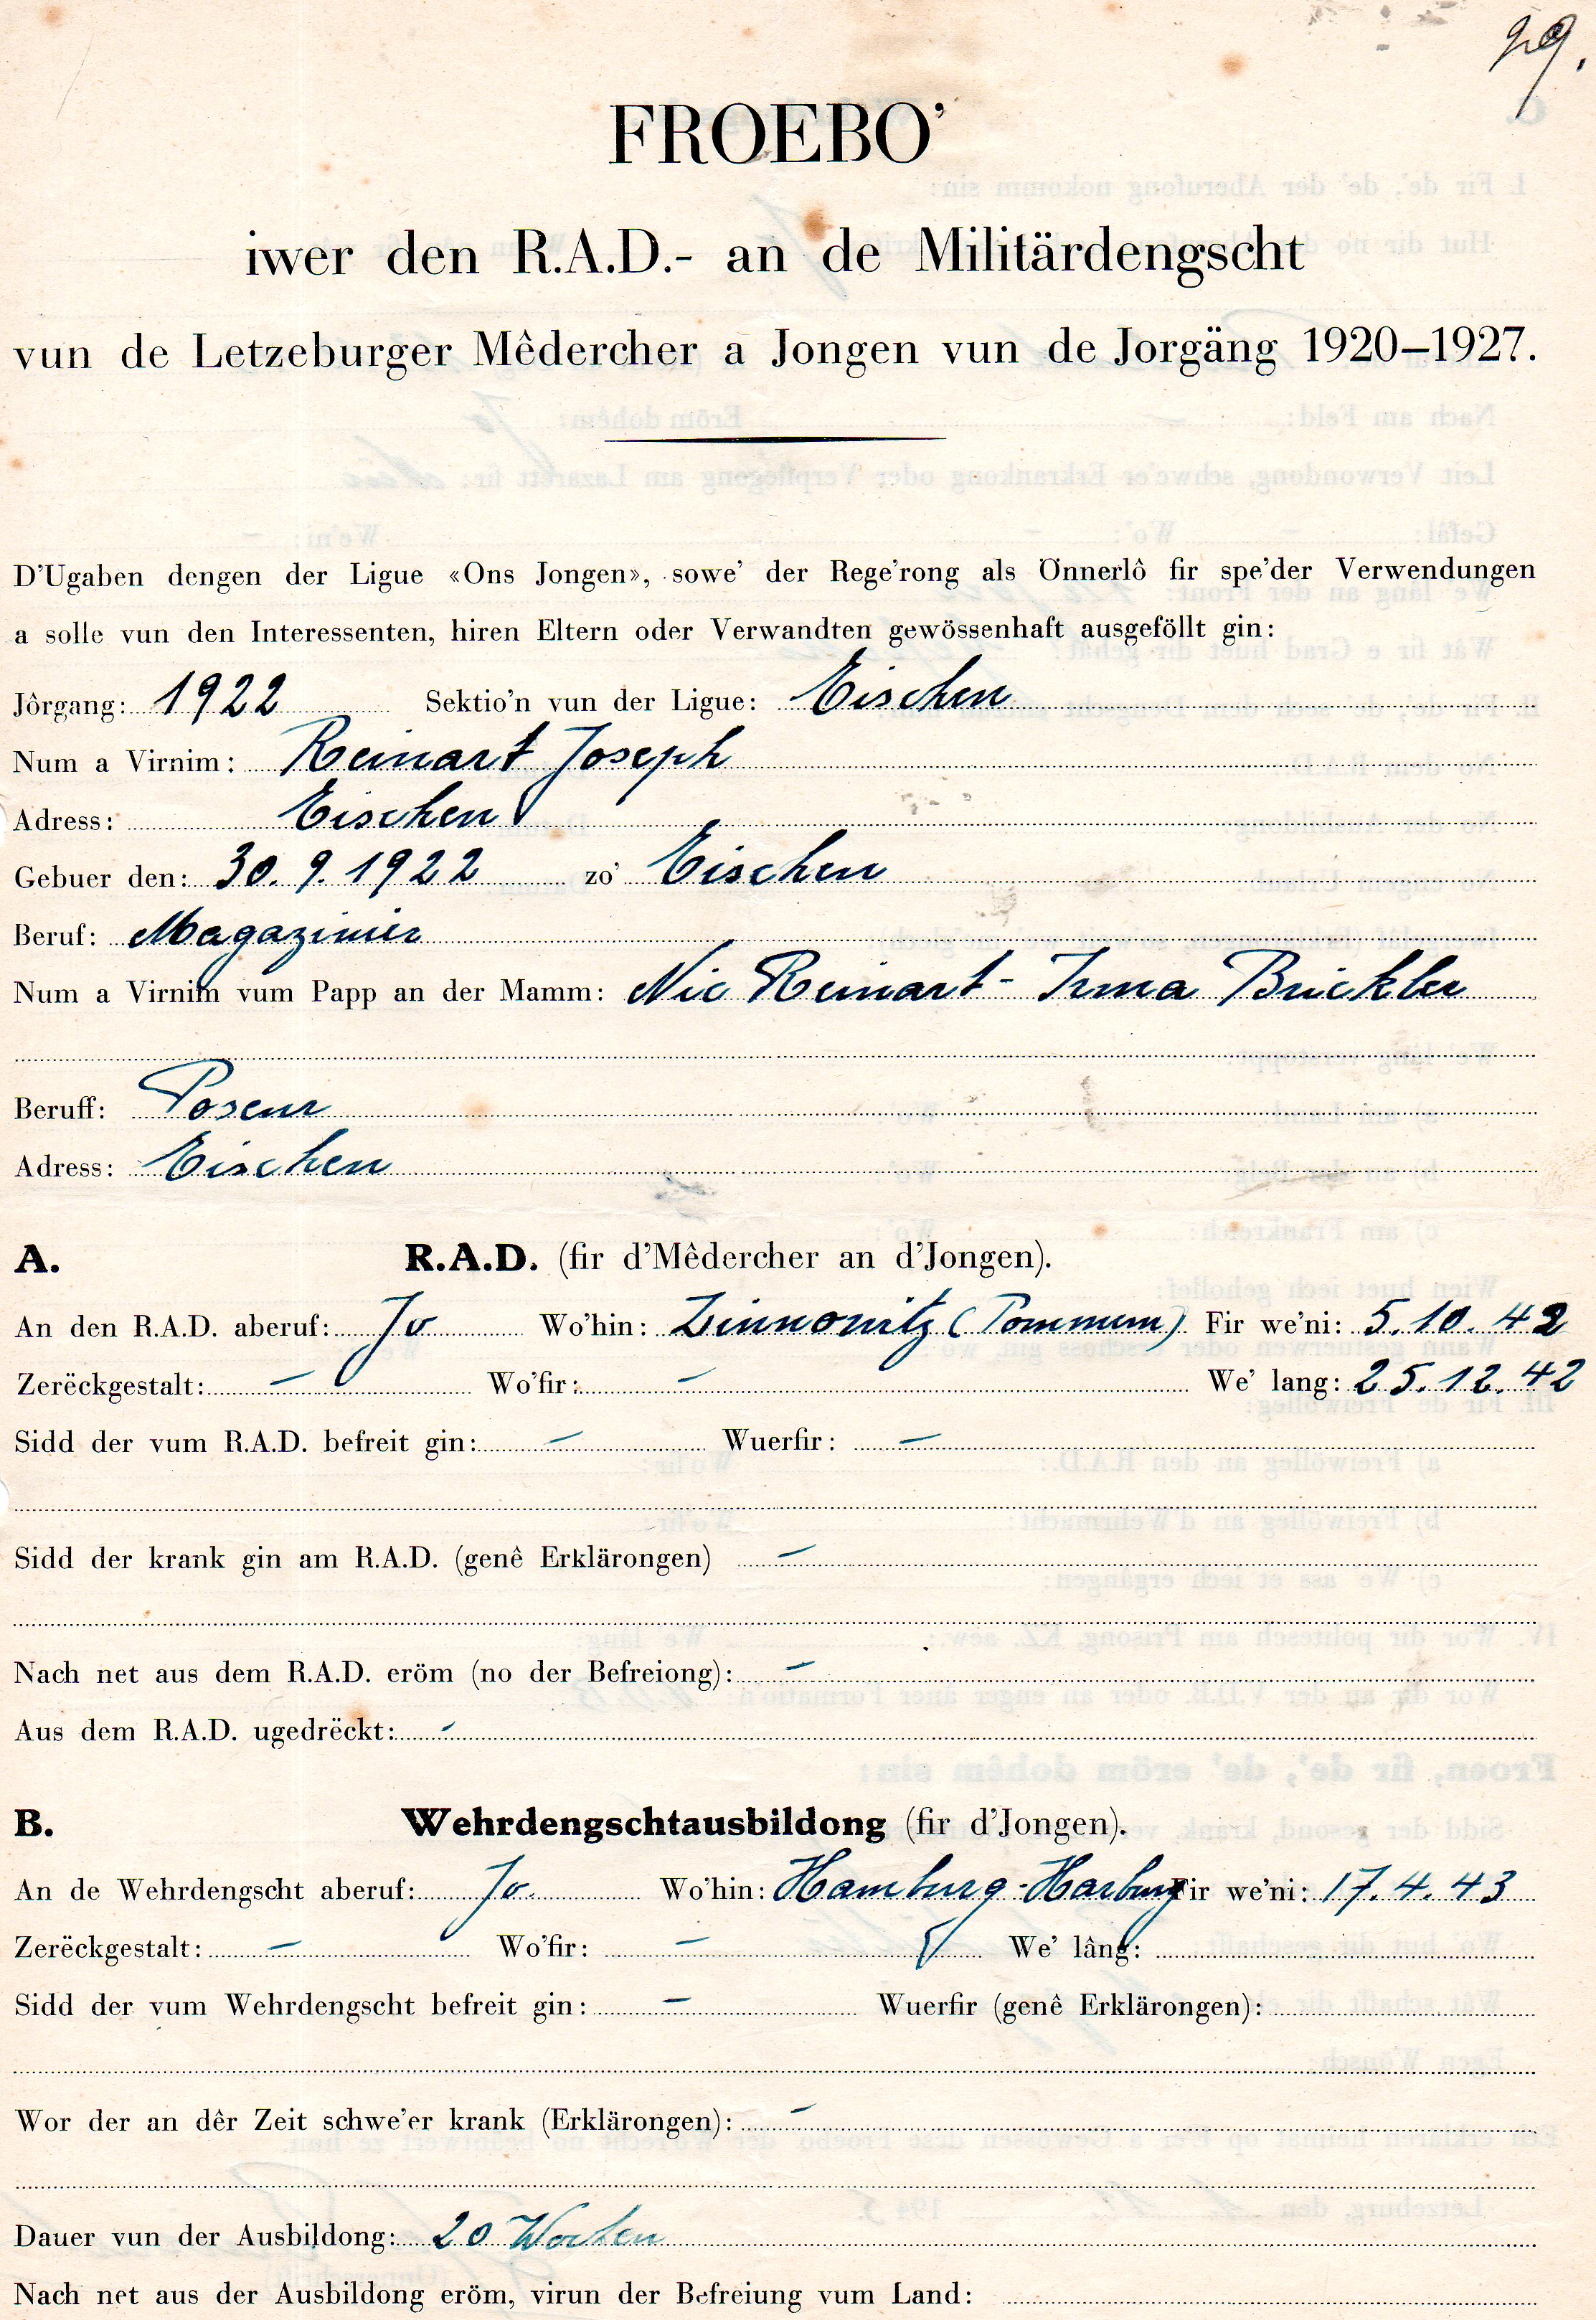 29.
FROEBO'
iwer den R.A.D.- an de Militärdengscht
vun de Letzeburger Mêdercher a Jongen vun de Jorgäng 1920–1927.
D'Ugaben dengen der Ligue «Ons Jongen», sowe' der Rege'rong als Önnerlô fir spe'der Verwendungen
a solle vun den Interessenten, hiren Eltern oder Verwandten gewössenhaft ausgeföllt gin:
Jôrgang: 1922 Sektio'n vun der Ligue: Eischen
Num a Virnim: Reinart Joseph
Adress: Eischen
Gebuer den: 30. 9. 1922 zo' Eischen
Beruf: Magazinier
Num a Virnim vum Papp an der Mamm: Nic Reinart - Irma Brickler
Beruff: Poseur
Adress: Eischen
A. R.A.D. (fir d'Mêdercher an d'Jongen).
An den R.A.D. aberuf: Jo Wo'hin: Zinnowitz (Pommern) Fir we'ni: 5. 10. 42
Zerëckgestalt: – Wo'fir: – We' lang: 25. 12. 42
Sidd der vum R.A.D. befreit gin: – Wuerfir: –
Sidd der krank gin am R.A.D. (genê Erklärongen) –
Nach net aus dem R.A.D. eröm (no der Befreiong): –
Aus dem R.A.D. ugedrëckt: –
B. Wehrdengschtausbildong (fir d'Jongen).
An de Wehrdengscht aberuf: Jo. Wo'hin: Hamburg-Harburg Fir we'ni: 17. 4. 43
Zerëckgestalt: – Wo'fir: – We' lâng:
Sidd der vum Wehrdengscht befreit gin: – Wuerfir (genê Erklärongen):
Wor der an dêr Zeit schwe'er krank (Erklärongen): –
Dauer vun der Ausbildong: 20 Wochen
Nach net aus der Ausbildong eröm, virun der Befreiung vum Land: